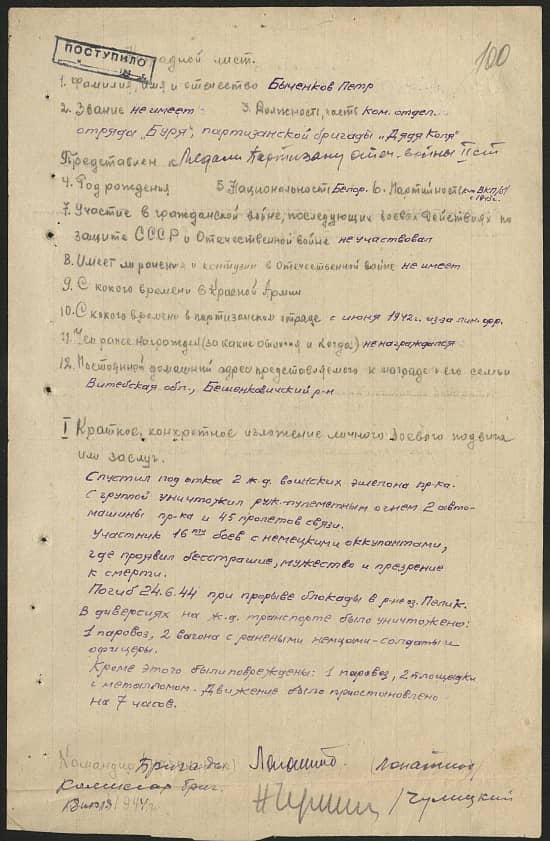 ПОСТУПИЛО
100
Наградной лист.
1. Фамилия, имя и отчество Быченков Петр
2. Звание не имеет 3. Должность, часть ком. отдел.
отряда "Буря", партизанской бригады "Дядя Коля"
Представлен к Медали Партизану отеч. войны II ст
4. Год рождения 5. Национальность Белор. 6. Партийность ВКП/б/
с 1943 г.
7. Участие в гражданской войне, последующих боевых действиях по
защите СССР и Отечественной войне не участвовал
8. Имеет ли ранения и контузии в Отечественной войне не имеет
9. С какого времени в Красной Армии
10. С какого времени в партизанском отряде с июня 1942 г. из-за лин. фр.
11. Чем ранее награжден (за какие отличия и когда) не награждался
12. Постоянный домашний адрес представляемого к награде и его семьи
Витебская обл., Бешенковичский р-н
I Краткое, конкретное изложение личного боевого подвига
или заслуг.
Спустил под откос 2 ж.д. воинских эшелона пр-ка.
С группой уничтожил руж.-пулеметным огнем 2 авто-
машины пр-ка и 45 пролетов связи.
Участник 16ти боев с немецкими оккупантами,
где проявил бесстрашие, мужество и презрение
к смерти.
Погиб 24.6.44 при прорыве блокады в р-не оз. Пелик.
В диверсиях на ж.д. транспорте было уничтожено:
1 паровоз, 2 вагона с ранеными немцами-солдаты и
офицеры.
Кроме этого были повреждены: 1 паровоз, 2 площадки
с металломом. Движение было приостановлено
на 7 часов.
Командир Бригады Лопатин
Комиссар бриг. /Чулицкий
1944 г.